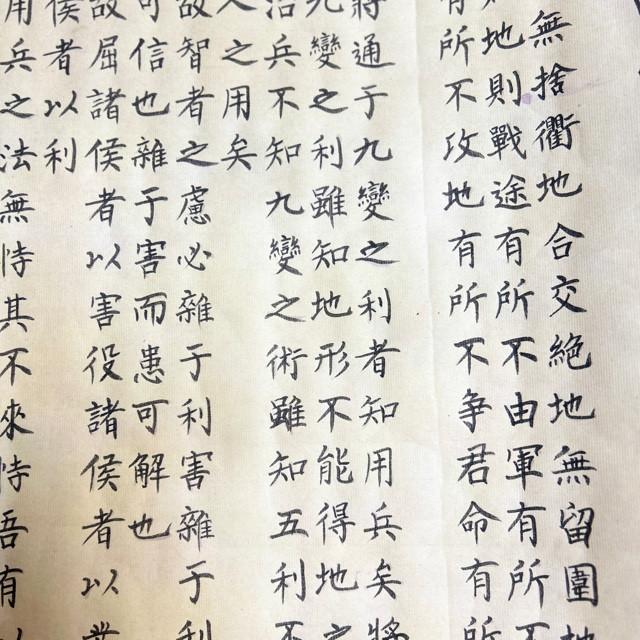 無捨衢地合交絶地無留圍地
地則戰途有所不由軍有所不
有所不攻地有所不争君命有所
將通于九變之利者知用兵矣將
九變之利雖知地形不能得地之
治兵不知九變之術雖知五利不
人之用矣
故智者之慮必雜于利害雜于利
可信也雜于害而患可解也
故屈諸侯者以害役諸侯者以業
侯者以利
用兵之法無恃其不來恃吾有以